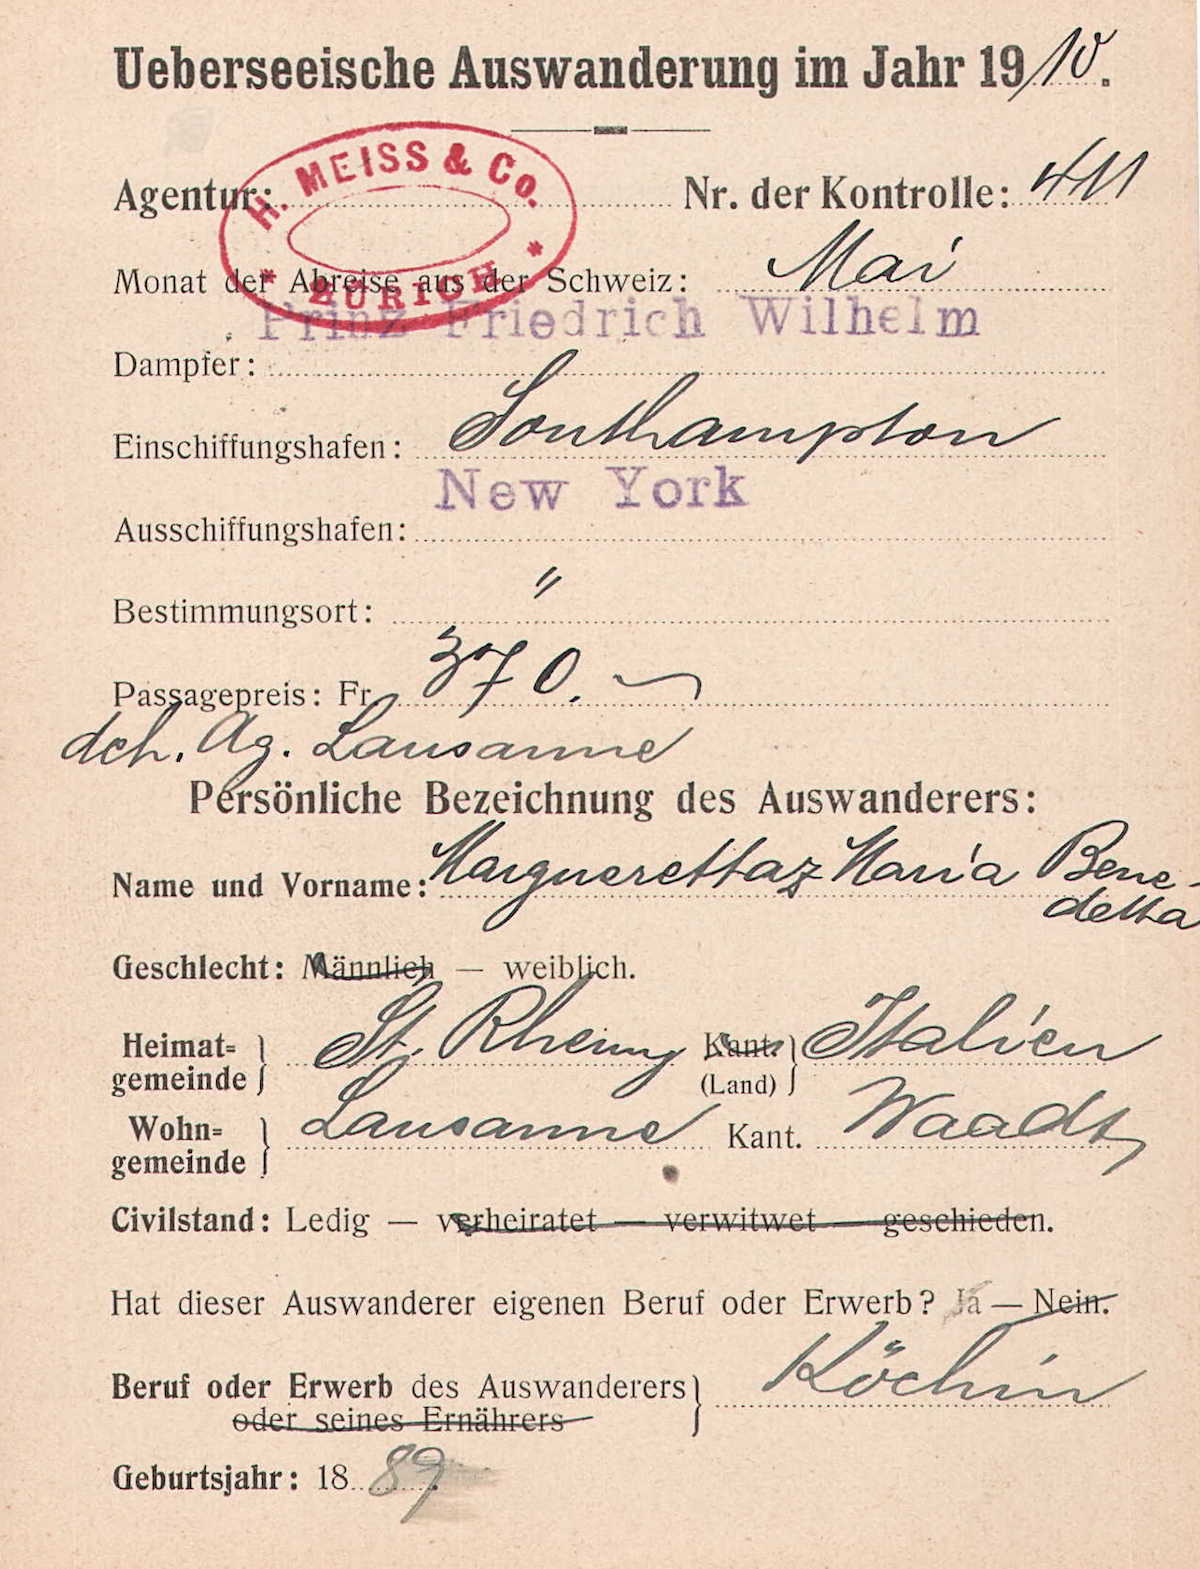 Ueberseeische Auswanderung im Jahr 1910.
Agentur: H. MEISS & Co. * ZÜRICH * Nr. der Kontrolle: 411
Monat der Abreise aus der Schweiz: Mai
Prinz Friedrich Wilhelm
Dampfer:
Einschiffungshafen: Southampton
New York
Ausschiffungshafen:
Bestimmungsort: "
Passagepreis: Fr. 370.—
dch. Ag. Lausanne
Persönliche Bezeichnung des Auswanderers:
Name und Vorname: Marguerettaz Maria Bene-
detta
Geschlecht: Männlich — weiblich.
Heimat= gemeinde } St. Rhemy Kant. (Land) } Italien
Wohn= gemeinde } Lausanne Kant. Waadt
Civilstand: Ledig — verheiratet — verwitwet — geschieden.
Hat dieser Auswanderer eigenen Beruf oder Erwerb? Ja — Nein.
Beruf oder Erwerb des Auswanderers } Köchin
oder seines Ernährers
Geburtsjahr: 1889.